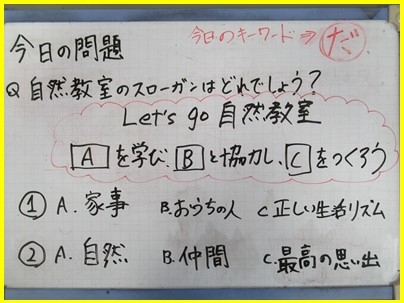 今日のキーワード⇒だ
今日の問題
Q 自然教室のスローガンはどれでしょう?
Let's go 自然教室
Aを学び、Bと協力し、Cをつくろう
① A. 家事 B. おうちの人 C. 正しい生活リズム
② A. 自然 B. 仲間 C. 最高の思い出